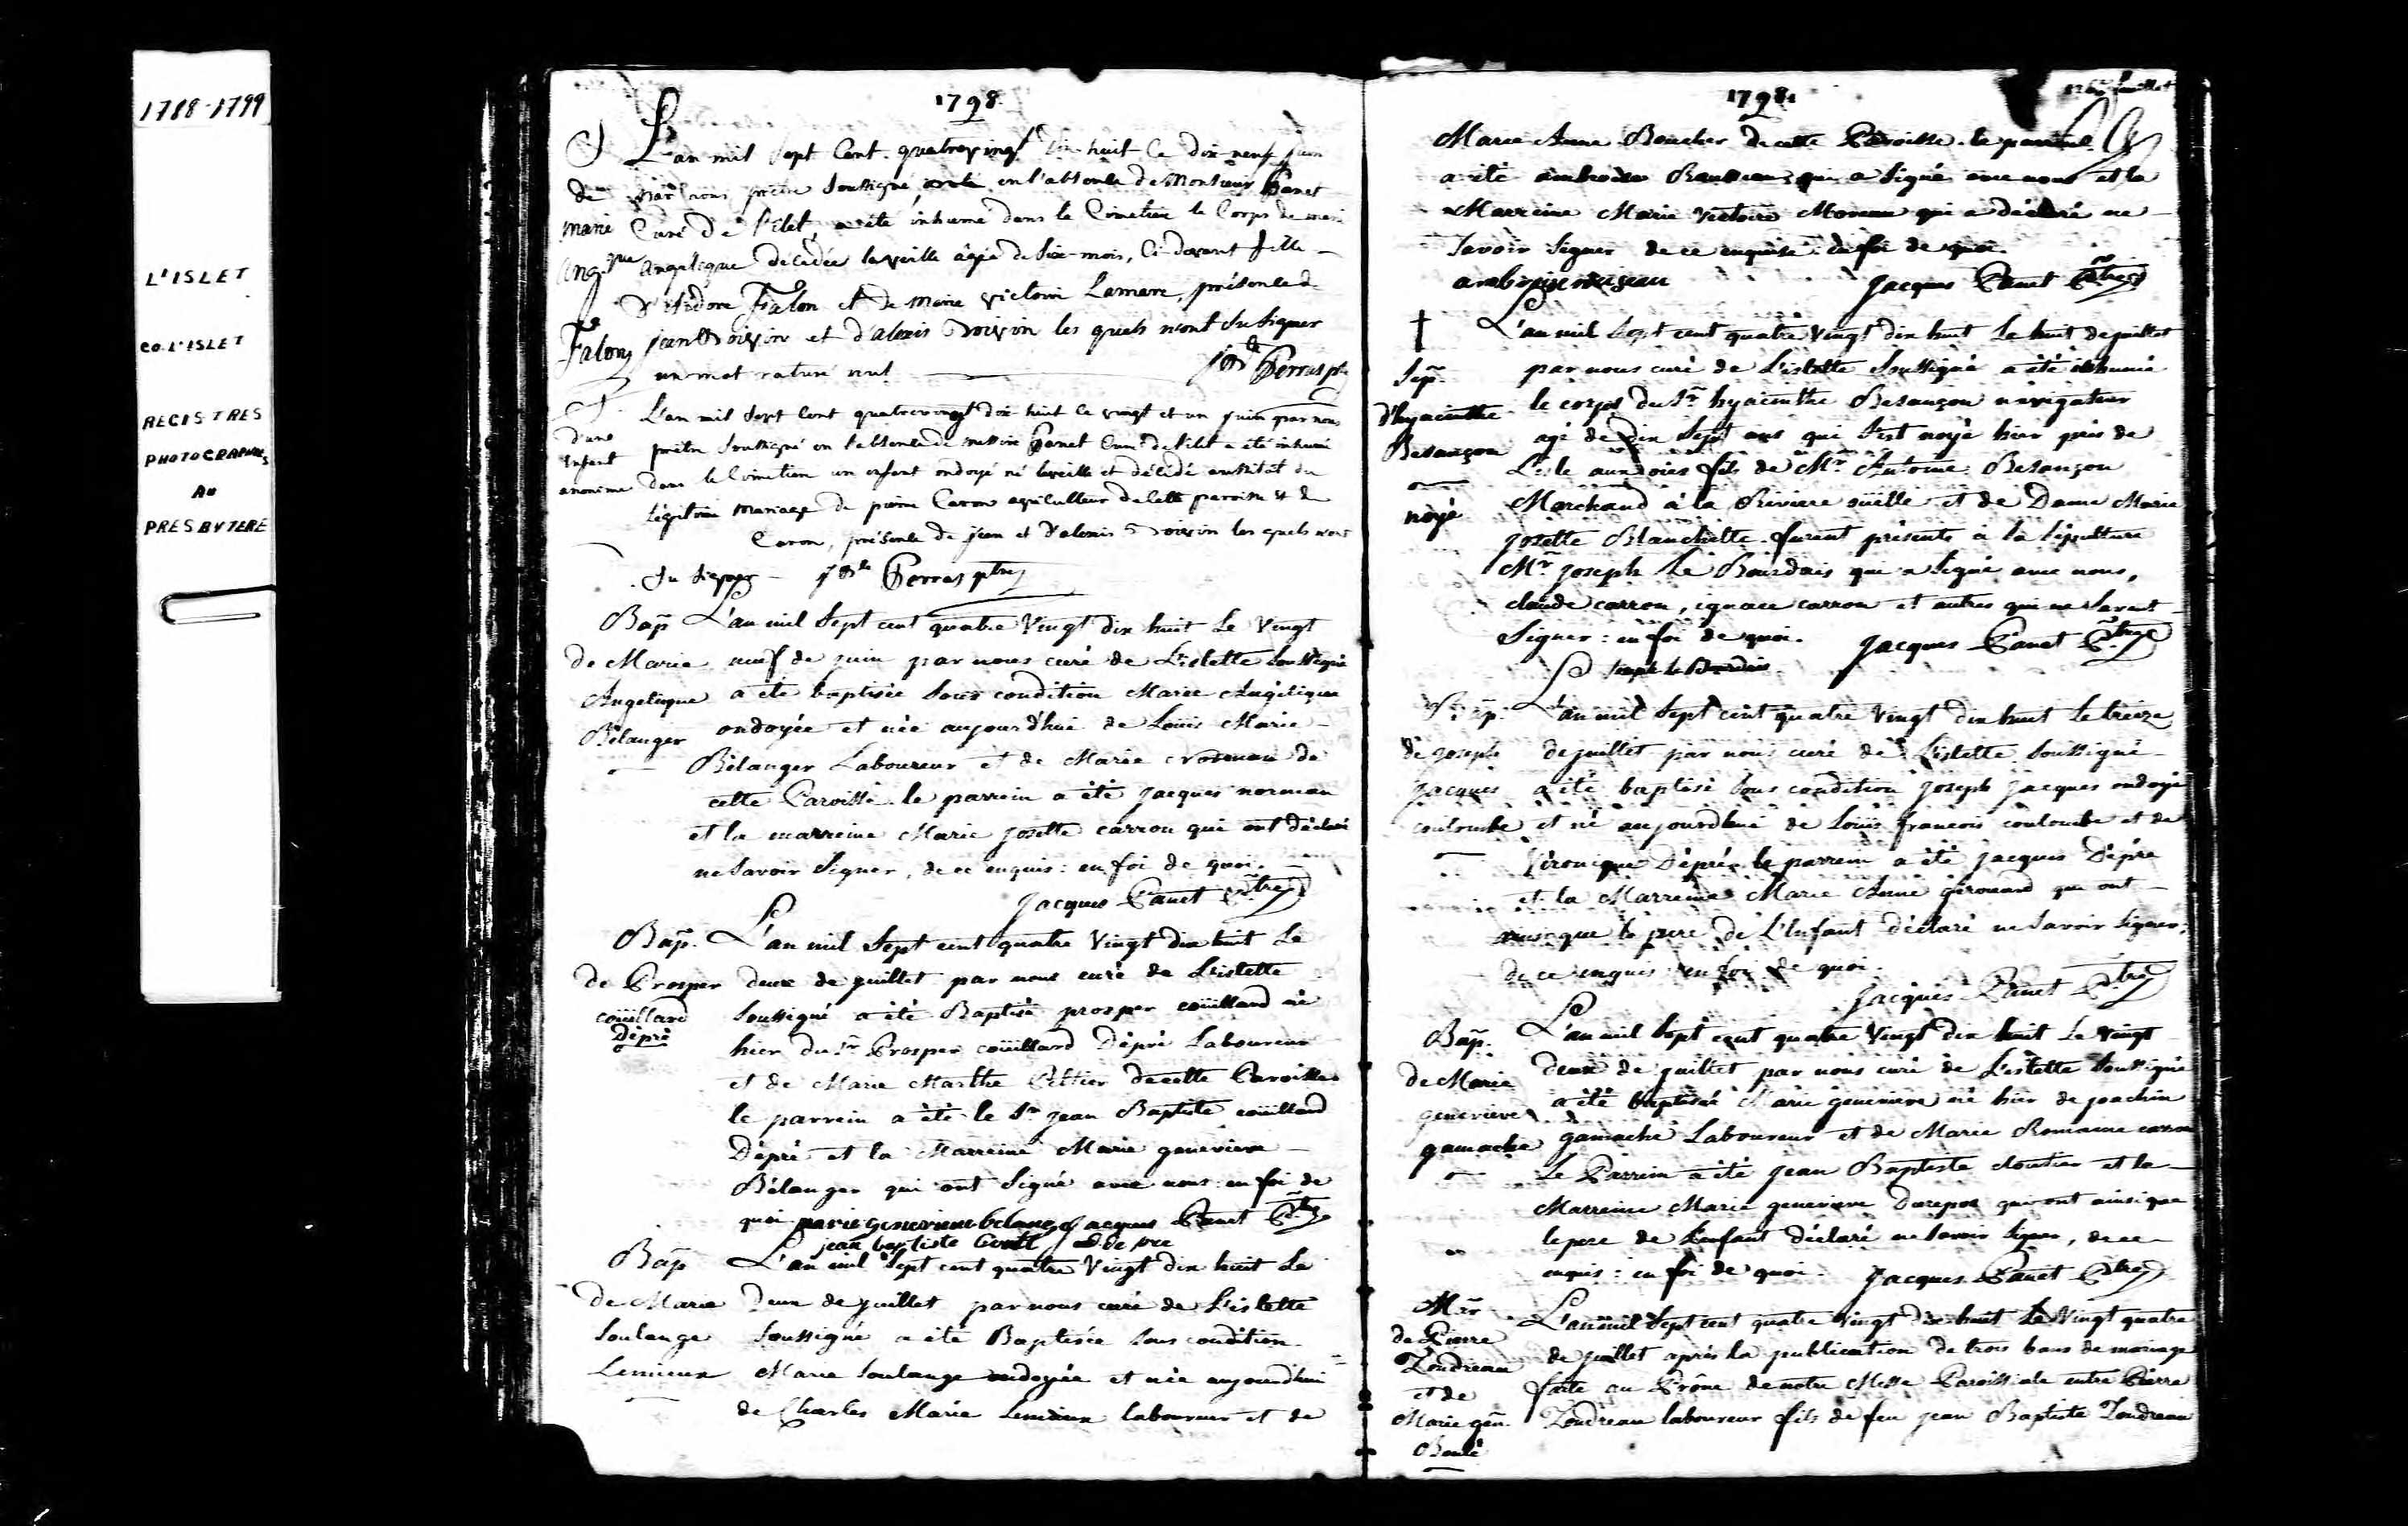 1788-1799
L'ISLET
CO. L'ISLET
REGISTRES
PHOTOGRAPHIÉS
AU
PRESBYTERE
1798.
S
de
marie
angelque
Falon
L'an mil sept Cent quatrevingt dix huit le dix-neuf juin
par nous prêtre soussigné en l'absence de Monsieur Panet
Curé de l'ilet, a été inhumé dans le Cimetiere le Corps de marie
angelique decedée la veille âgée de Six-mois, Ci-devant fille
d'isidore Falon et de marie victoire Lamare, présence de
jean Voisin et d'alexis Voisin les quels n'ont su signer
un mot raturé nul
J Bte Perras ptre
S.
d'une
Enfant
anonime
L'an mil Sept Cent quatrevingt dix huit le vingt et un juin par nous
prêtre soussigné en l'absence de messire Panet Curé de l'ilet a été inhumé
dans le Cimetiere un enfant ondoyé né la veille et décédé aussitôt du
légitime mariage de pierre Caron agriculteur de cette paroisse et de
Caron, présence de jean et d'alexis Voisin les quels n'ont
su signer J Bte Perras ptre
Bap
de Marie
Angelique
Bélanger
L'an mil Sept cent quatre Vingt dix huit le Vingt
neuf de juin par nous curé de L'islette soussigné
a été baptisée sous condition Marie Angélique
ondoyée et née aujourd'hui de Louis Marie
Bélanger Laboureur et de Marie de
cette Paroisse. le parrein a été jacques norman
et la marreine Marie josette carron qui ont déclaré
ne Savoir Signer, de ce enquis: en foi de quoi.
Jacques Panet Ptre
Bap.
de Prosper
coüillard
Dépré
L'an mil Sept cent quatre Vingt dix huit Le
deux de juillet par nous curé de L'islette
Soussigné a été Baptisé prosper coüillard né
hier du Sr Prosper coüillard Dépré Laboureur
et de Marie Marthe Peltier de cette Paroisse
le parrein a été le Sr jean Baptiste coüillard
Dépré et la Marreine Marie genevieve
Bélanger qui ont Signé avec nous: en foi de
quoi marie genevieve belange Jacques Panet Ptre
jean baptiste
Bap
de Marie
Soulange
Lemieux
L'an mil Sept cent quatre Vingt dix huit Le
Deux de juillet par nous curé de L'islette
Soussigné a été Baptisée sous condition
Marie Soulange ondoyée et née aujourdhui
de Charles Marie Lemieux laboureur et de
1798.
feuillet
Marie Anne Boucher de cette Paroisse. le parrein
a été qui a Signé avec nous et la
Marreine Marie Victoire Moreau qui a déclaré ne
Savoir Signer de ce enquise: en foi de quoi.
Jacques Panet Ptre
†
Sep.
d'hyacinthe
Besançon
noyé
L'an mil Sept cent quatre Vingt dix huit Le huit de juillet
par nous curé de L'islette Soussigné a été inhumé
le corps du Sr hyacinthe Besançon navigateur
agé de dix Sept ans qui S'est noyé hier près de
L'isle aux oies fils de Mr Antoine Besançon
Marchand à la Riviere oüelle et de Dame Marie
josette Blanchette. furent présents à la Sépulture
Mr joseph Le Bourdais qui a Signé avec nous,
claude carron, ignace carron et autres qui ne Savent
Signer: en foi de quoi. Jacques Panet Ptre
Joseph Le Bourdais
Bap.
de joseph
jacques
coulombe
L'an mil Sept cent quatre Vingt dix huit Le treize
de juillet par nous curé de L'islette Soussigné
a été baptisé Sous condition joseph jacques ondoyé
et né aujourdhui de Loüis francois coulombe et de
Véronique Dépré. le parrein a été jacques Dépré
et la Marreine Marie Anne girouard qui ont
ainsi que le pere de L'Enfant déclaré ne Savoir Signer,
de ce enquis: en foi de quoi.
Jacques Panet Ptre
Bap.
de Marie
genevieve
gamache
L'an mil Sept cent quatre Vingt dix huit Le Vingt
deux de juillet par nous curé de L'islette Soussigné
a été baptisée Marie genevieve né hier de joachin
gamache Laboureur et de Marie Romaine carron
Le Parrein a été jean Baptiste cloutier et la
Marreine Marie genevieve qui ont ainsi que
le pere de L'enfant déclaré ne Savoir Signer, de ce
enquis: en foi de quoi. Jacques Panet Ptre
Mar
de Pierre
Zoudreau
et de
Marie gen.
Boulé
L'an mil Sept cent quatre Vingt dix huit Le Vingt quatre
de juillet après la publication de trois bans de mariage
faite au Prône de notre Messe Paroissiale entre Pierre
Zoudreau laboureur fils de feu jean Baptiste Zoudreau